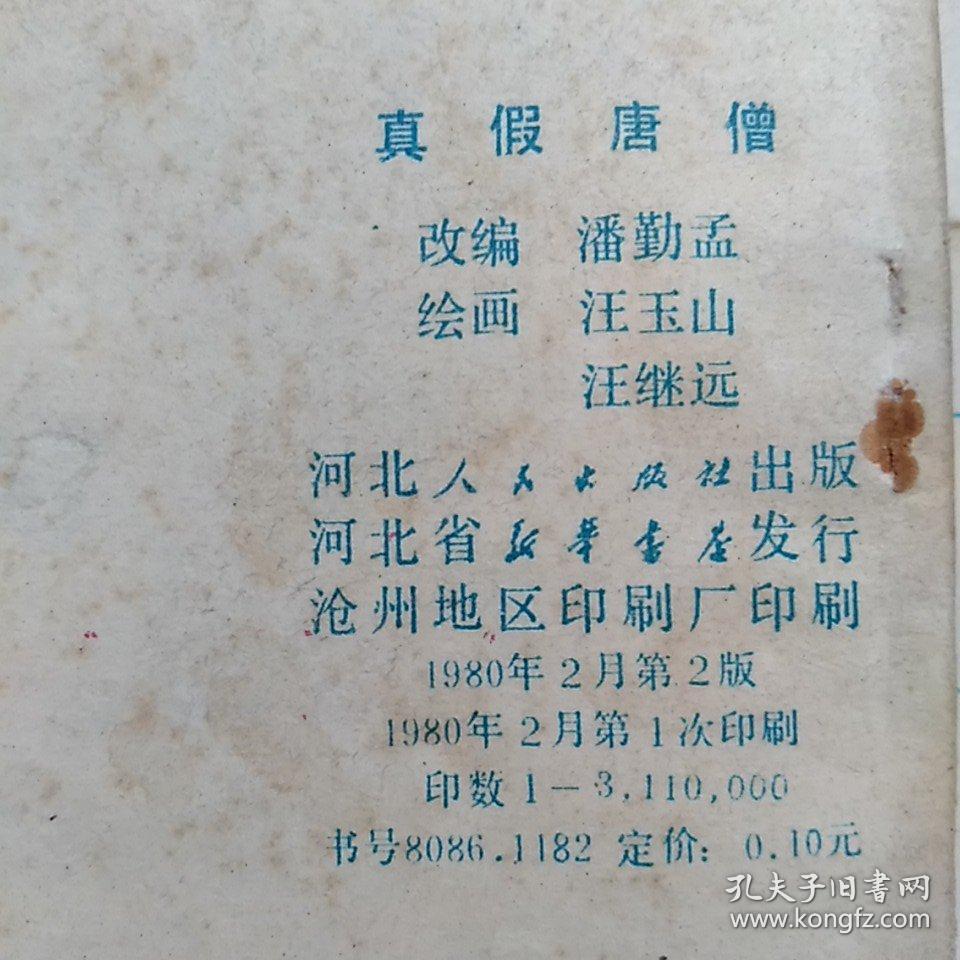 真假唐僧
改编 潘勤孟
绘画 汪玉山
汪继远
河北人民出版社出版
河北省新华书店发行
沧州地区印刷厂印刷
1980年2月第2版
1980年2月第1次印刷
印数1—3,110,000
书号8086.1182 定价：0.10元
孔夫子旧書网
www.kongfz.com